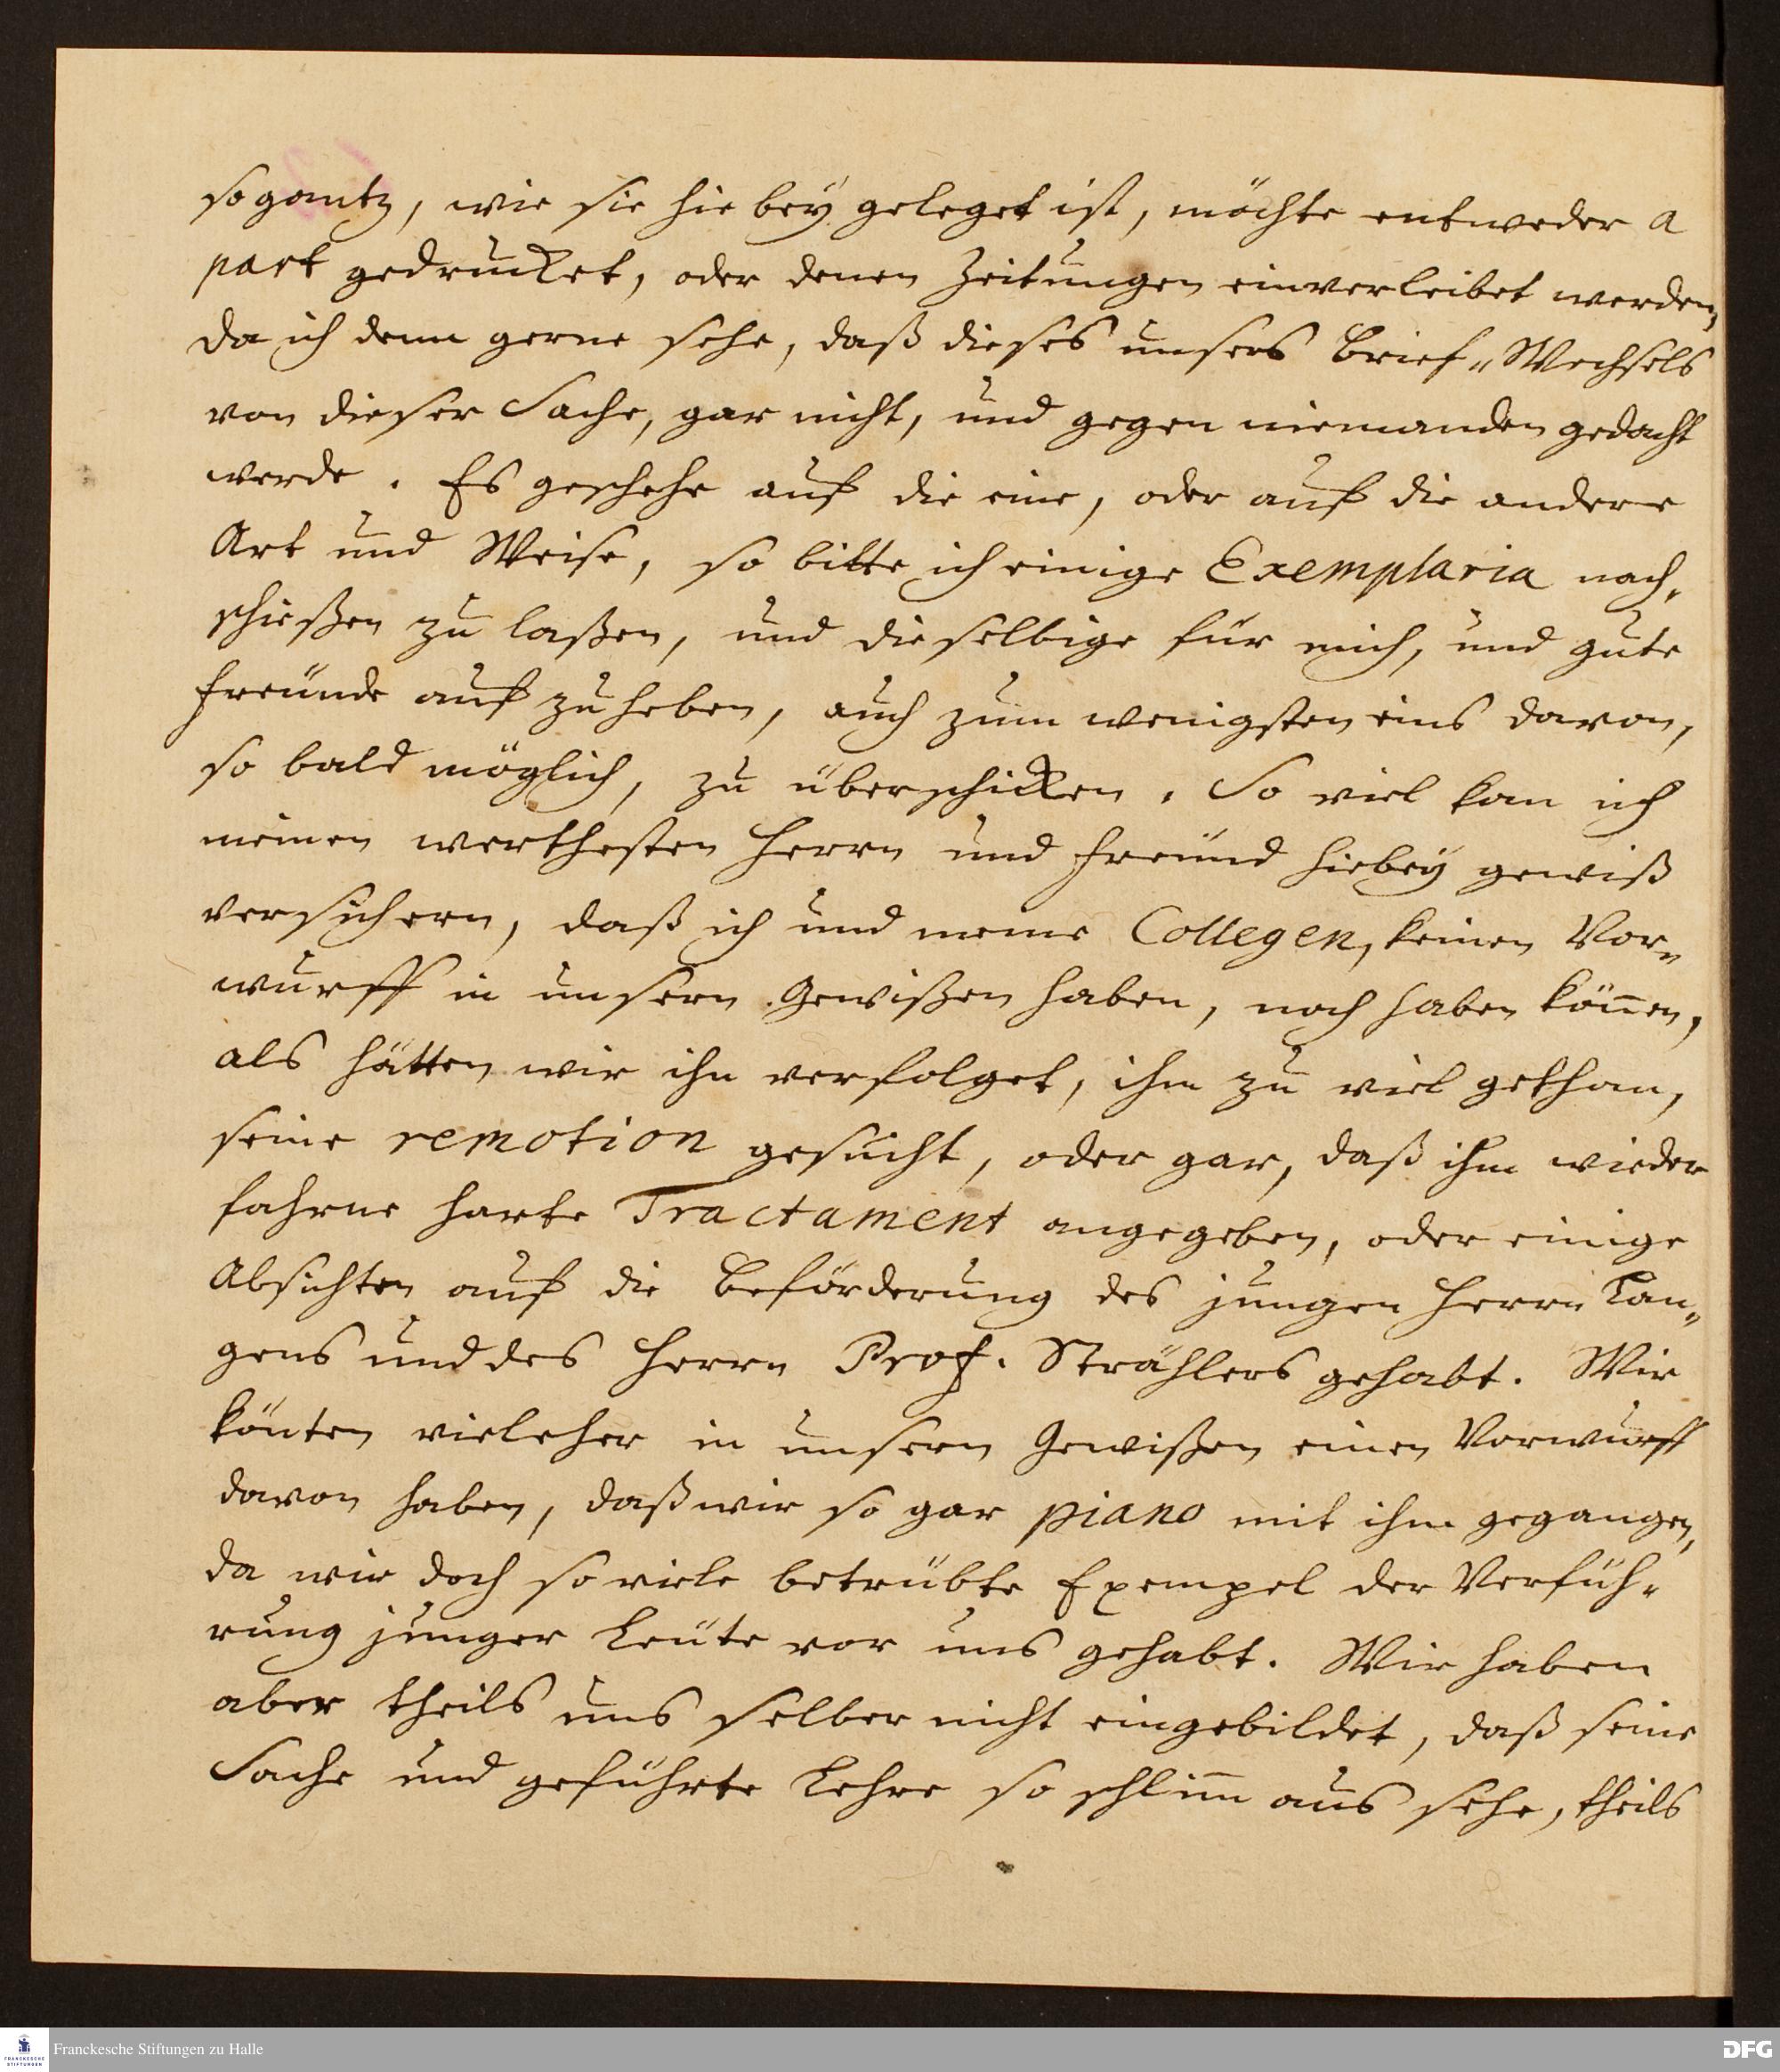 so gantz, wie sie hie bey geleget ist, möchte entweder a
part gedrucket, oder denen Zeitungen einverleibet werden,
da ich denn gerne sehe, daß dieses unsers Brief-Wechsels
von dieser Sache, gar nicht, und gegen niemanden gedacht
werde. Es geschehe auf die eine, oder auf die andere
Art und Weise, so bitte ich einige Exemplaria nach-
schießen zu laßen, und dieselbige für mich, und gute
Freünde auf zu heben, auch zum wenigsten eins davon,
so bald möglich, zu überschicken. So viel kan ich
meinen werthesten Herrn und Freünd hiebey gewiß
versichern, daß ich und meine Collegen, keinen Vor-
wurff in unsern Gewißen haben, noch haben können,
als hätten wir ihn verfolget, ihm zu viel gethan,
seine remotion gesucht, oder gar, daß ihm wieder
fahrne harte Tractament angegeben, oder einige
Absichten auf die Beförderung des jungen Herrn Lan-
gens und des Herrn Prof. Strählers gehabt. Wir
könten vieleher in unsern Gewißen einen Vorwurff
davon haben, daß wir so gar piano mit ihm gegangen,
da wir doch so viele betrübte Exempel der Verfüh-
rung junger Leüte vor uns gehabt. Wir haben
aber theils uns selber nicht eingebildet, daß seine
Sache und geführte Lehre so schlim̅ aus sehe, theils
Franckesche Stiftungen zu Halle
FRANCKESCHE
STIFTUNGEN
DFG